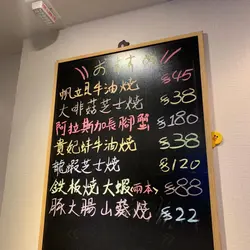 おすすめ
帆立貝牛油燒 $45
大啡菇芝士燒 $38
阿拉斯加長腳蟹 $180
貴妃蚌牛油燒 $38
龍蝦芝士燒 $120
鉄板燒大蝦(兩本) $88
豚大腸山葵燒 $22